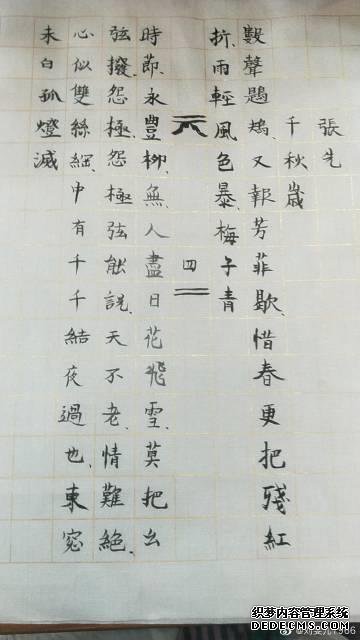 張先
千秋歲
數聲鶗鴂又報芳菲歇、惜春更把殘紅
折、雨輕風色暴、梅子青
四
時節、永豐柳、無人盡日花飛雪、莫把幺
弦撥、怨極、怨極弦能說、天不老、情難絕、
心似雙絲網、中有千千結夜過也、東窓
未白孤燈滅
织梦内容管理系统
DEDECMS.COM